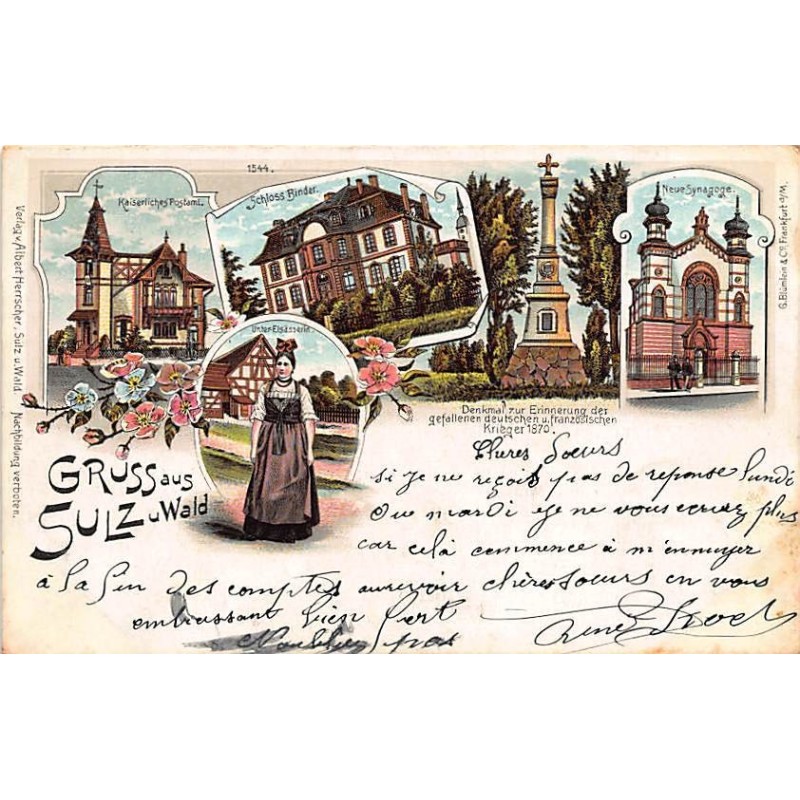 1544.
Kaiserliches Postamt.
Schloss Binder.
Neue Synagoge.
Unter-Elsässerin.
Denkmal zur Erinnerung der
gefallenen deutschen u. französischen
Krieger 1870.
GRUSS aus
SULZ u Wald
Verlag v. Albert Herrscher, Sulz u. Wald. Nachbildung verboten.
G. Blümlein & Co. Frankfurt a/M.
Chères Soeurs
si je ne reçois pas de reponse lundi
ou mardi je ne vous ecrirez plus
car celà commence à m'ennuyer
à la fin des comptes aurevoir chères soeurs en vous
embrassant bien fort
René
N'oubliez pas